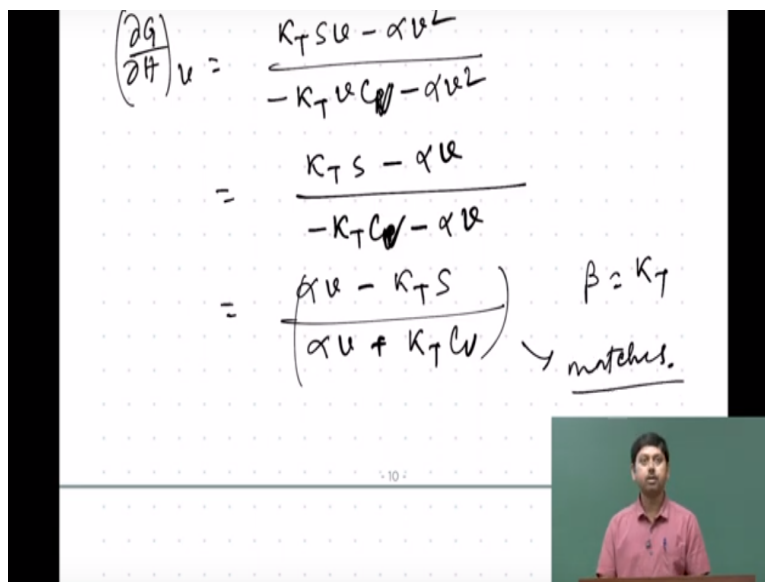 (∂G/∂H)_v = (K_T S v − α v²) / (−K_T v C_v − α v²)
= (K_T S − α v) / (−K_T C_v − α v)
= (α v − K_T S / α v + K_T C_v) β = K_T
→ matches.
- 10 -